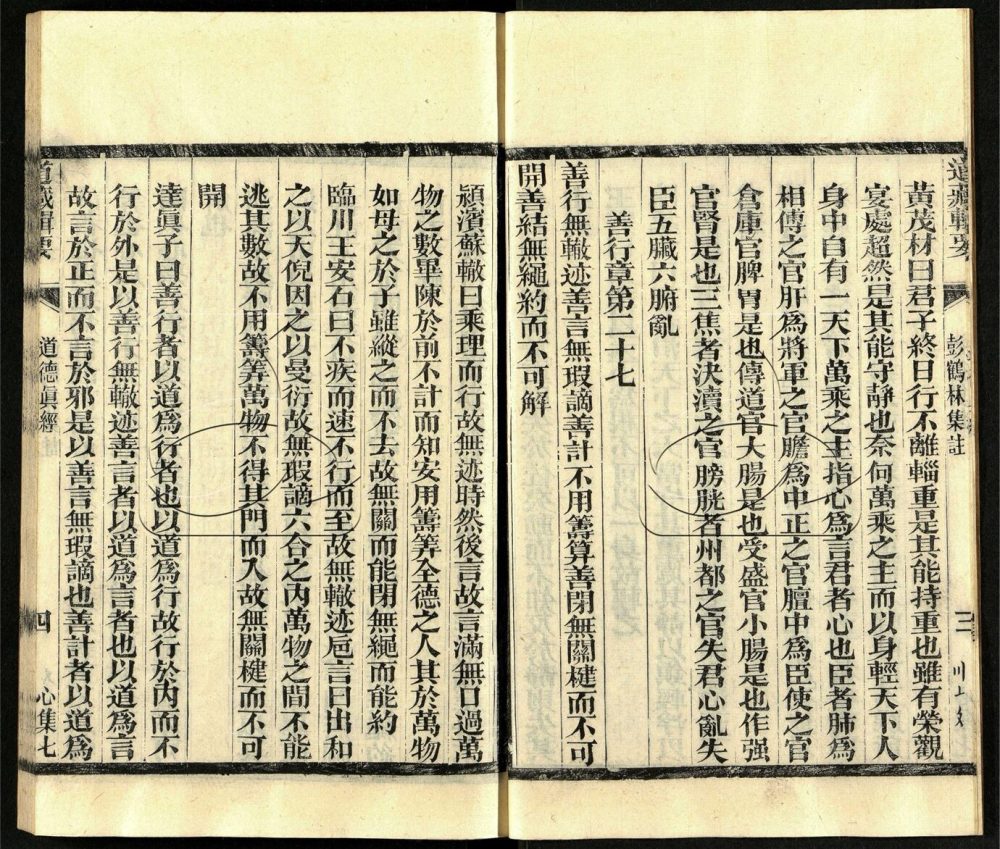 道藏輯要
彭鶴林集註
三
黃茂材曰君子終日行不離輜重是其能持重也雖有榮觀
宴處超然是其能守靜也奈何萬乘之主而以身輕天下人
身中自有一天下萬乘之主指心為言君者心也臣者肺為
相傅之官肝為將軍之官膽為中正之官膻中為臣使之官
倉庫官脾胃是也傳道官大腸是也受盛官小腸是也作强
官腎是也三焦者決瀆之官膀胱者州都之官失君心亂失
臣五臟六腑亂
善行章第二十七
善行無轍迹善言無瑕謫善計不用籌算善閉無關楗而不可
開善結無繩約而不可解
潁濱蘇轍曰乘理而行故無迹時然後言故言滿無口過萬
物之數畢陳於前不計而知安用籌筭全德之人其於萬物
如母之於子雖縱之而不去故無關而能閉無繩而能約
臨川王安石曰不疾而速不行而至故無轍迹巵言日出和
之以天倪因之以曼衍故無瑕謫六合之內萬物之間不能
逃其數故不用籌筭萬物不得其門而入故無關楗而不可
開
達眞子曰善行者以道為行者也以道為行故行於內而不
行於外是以善行無轍迹善言者以道為言者也以道為言
故言於正而不言於邪是以善言無瑕謫也善計者以道為
道藏輯要
道德眞經
四
心集七